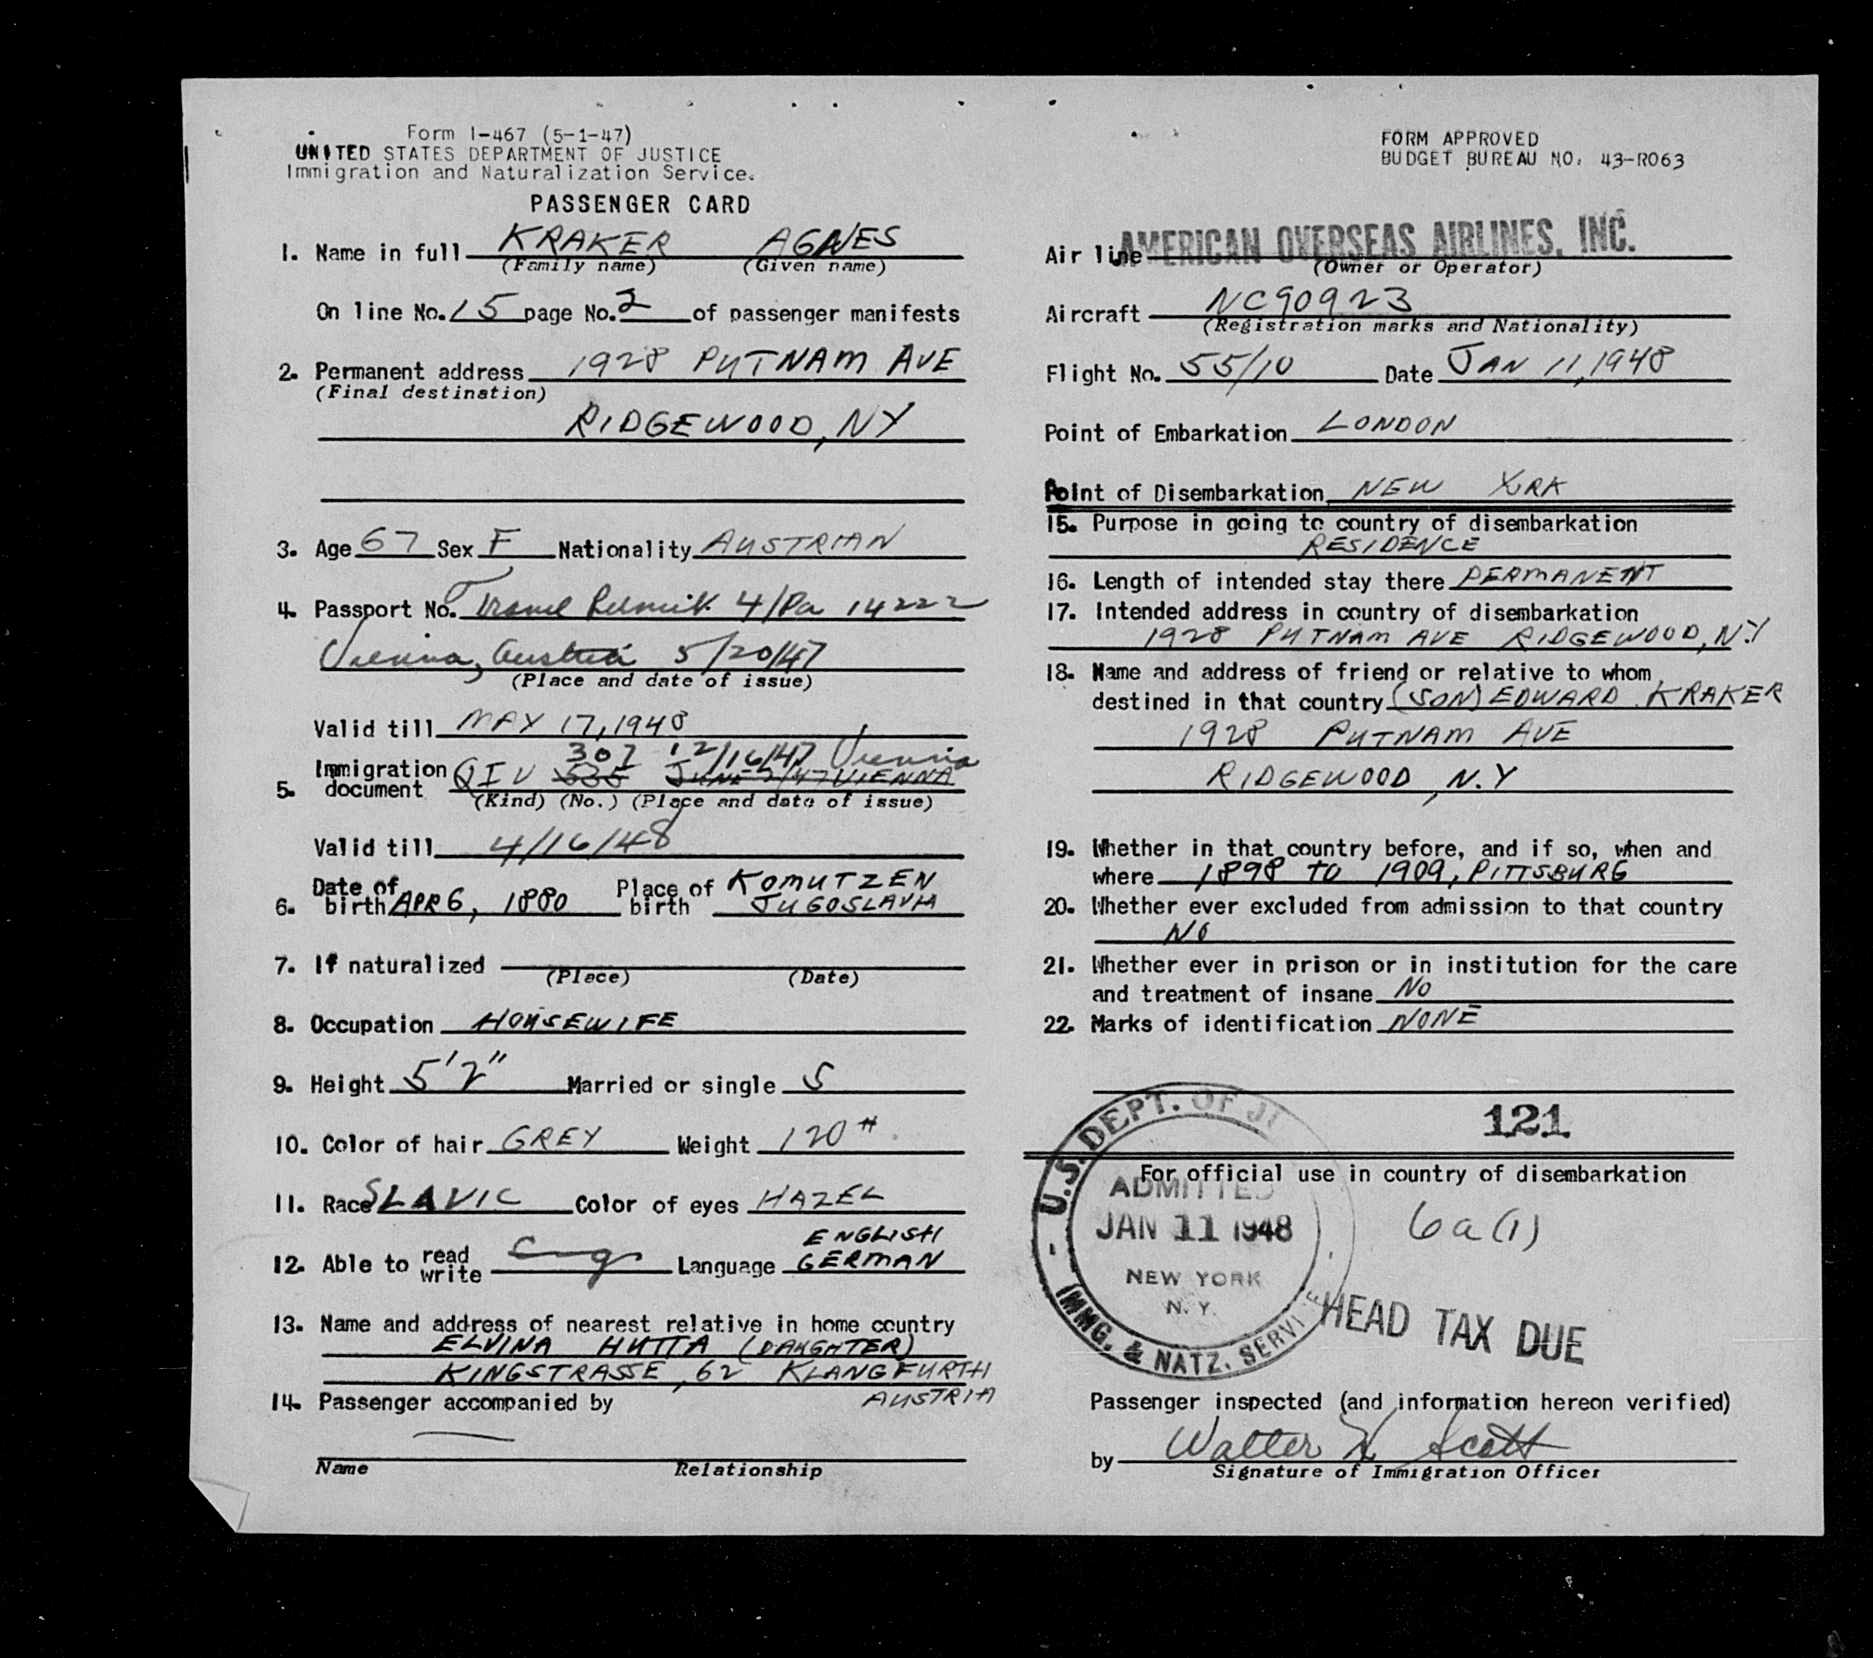 Form I-467 (5-1-47)
UNITED STATES DEPARTMENT OF JUSTICE
Immigration and Naturalization Service.
PASSENGER CARD
1. Name in full KRAKER AGNES
(Family name) (Given name)
On line No. 15 page No. 2 of passenger manifests
2. Permanent address 1928 PUTNAM AVE
(Final destination)
RIDGEWOOD, NY
3. Age 67 Sex F Nationality AUSTRIAN
4. Passport No. 4/Pa 14222
Vienna, Austria 5/20/47
(Place and date of issue)
Valid till MAY 17, 1948
307 12/16/47 Vienna
5. Immigration document QIV 535 JUNE 7/47 VIENNA
(Kind) (No.) (Place and date of issue)
Valid till 4/16/48
6. Date of birth APR 6, 1880 Place of birth KOMUTZEN
JUGOSLAVIA
7. If naturalized
(Place) (Date)
8. Occupation HOUSEWIFE
9. Height 5'2" Married or single S
10. Color of hair GREY Weight 120#
11. Race SLAVIC Color of eyes HAZEL
ENGLISH
12. Able to read write Language GERMAN
13. Name and address of nearest relative in home country
ELVINA HUTTA (DAUGHTER)
KINGSTRASSE, 62 KLANGFURTH
AUSTRIA
14. Passenger accompanied by
Name Relationship
FORM APPROVED
BUDGET BUREAU NO. 43-R063
Air line AMERICAN OVERSEAS AIRLINES, INC.
(Owner or Operator)
Aircraft NC90923
(Registration marks and Nationality)
Flight No. 55/10 Date JAN 11, 1948
Point of Embarkation LONDON
Point of Disembarkation NEW YORK
15. Purpose in going to country of disembarkation
RESIDENCE
16. Length of intended stay there PERMANENT
17. Intended address in country of disembarkation
1928 PUTNAM AVE RIDGEWOOD, N.Y
18. Name and address of friend or relative to whom
destined in that country (SON) EDWARD KRAKER
1928 PUTNAM AVE
RIDGEWOOD, N.Y
19. Whether in that country before, and if so, when and
where 1898 TO 1909, PITTSBURG
20. Whether ever excluded from admission to that country
NO
21. Whether ever in prison or in institution for the care
and treatment of insane NO
22. Marks of identification NONE
121
For official use in country of disembarkation
U.S. DEPT. OF JU
ADMITTED
JAN 11 1948
NEW YORK
N. Y.
IMMG. & NATZ. SERVICE
6a(1)
HEAD TAX DUE
Passenger inspected (and information hereon verified)
by Walter H Scott
Signature of Immigration Officer